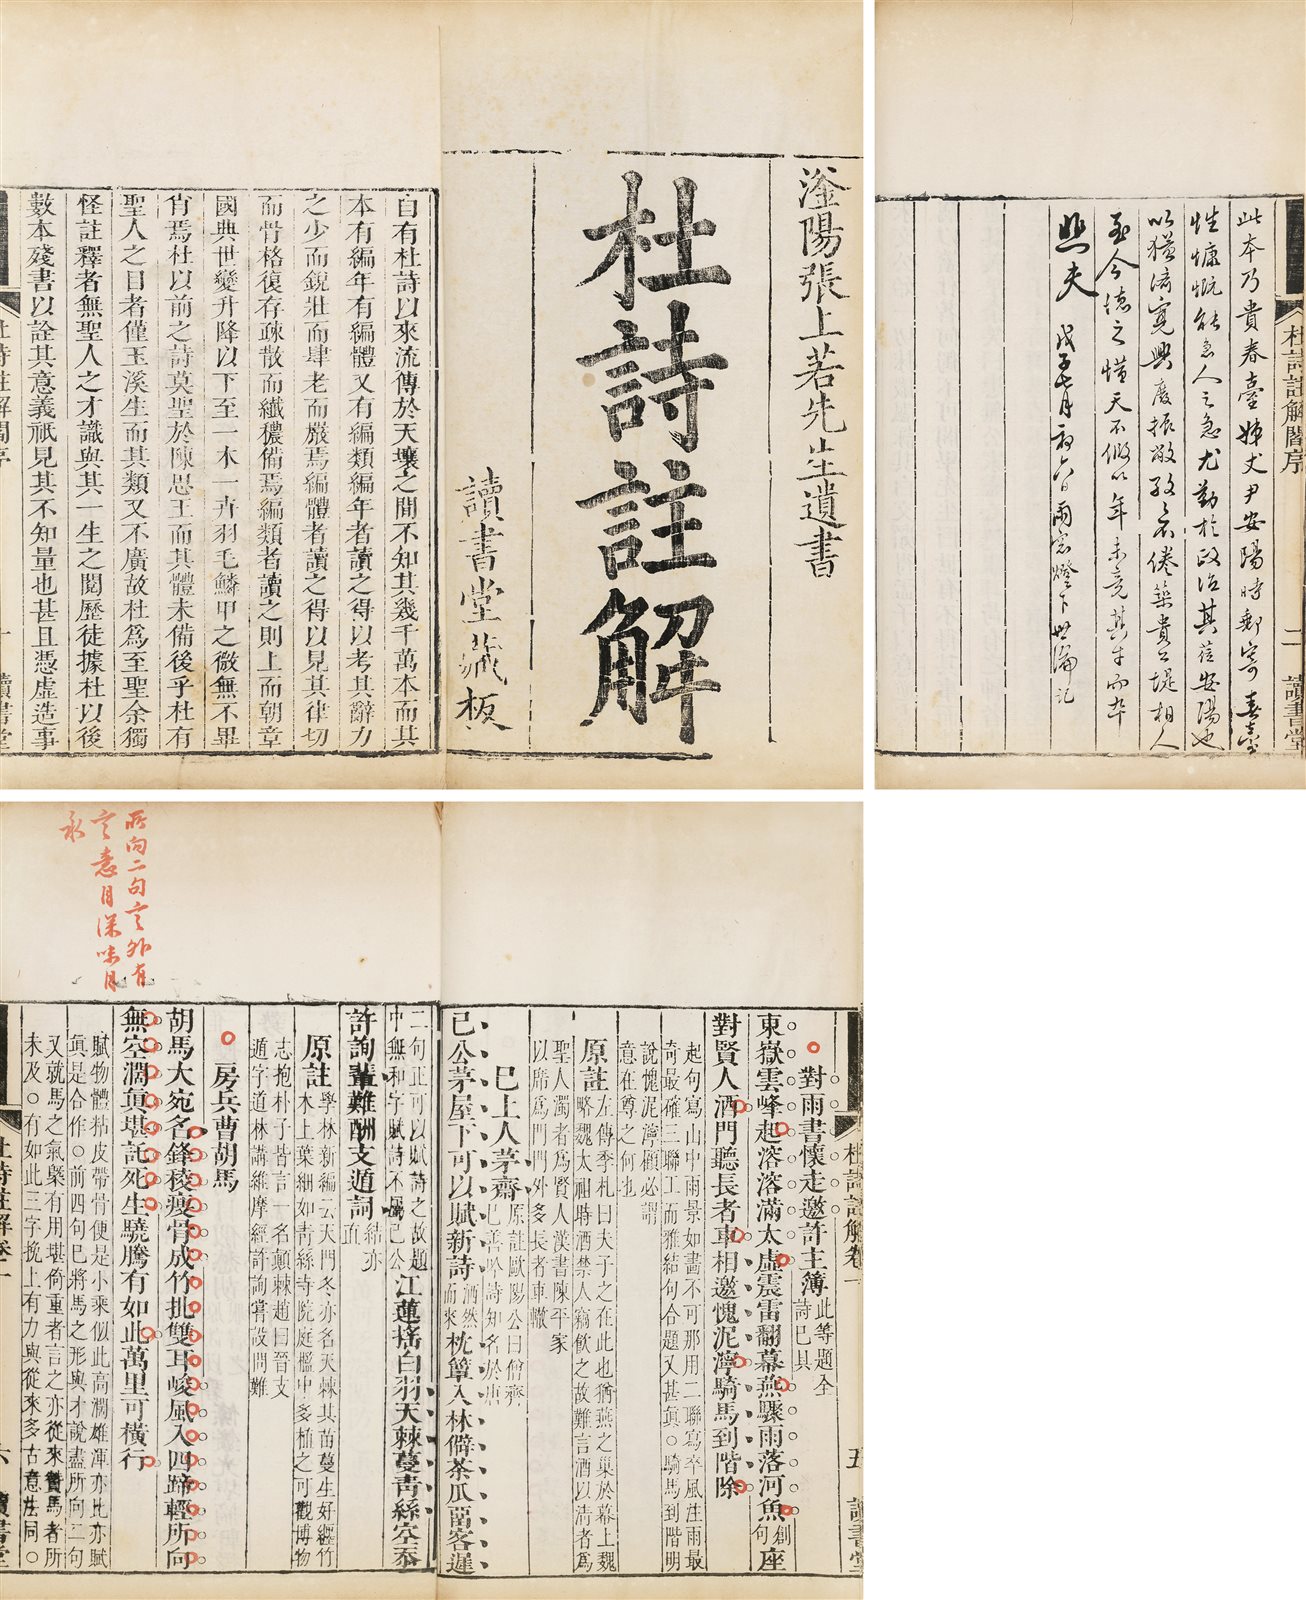 滏陽張上若先生遺書
杜詩註解
讀書堂藏板
自有杜詩以來流傳於天壤之間不知其幾千萬本而其
本有編年有編體又有編類編年者讀之得以考其辭力
之少而銳壯而肆老而嚴焉編體者讀之得以見其律切
而骨格復存疎散而纖穠備焉編類者讀之則上而朝章
國典世變升降以下至一木一卉羽毛鱗甲之微無不畢
肖焉杜以前之詩莫聖於陳思王而其體未備後乎杜有
聖人之目者僅玉溪生而其類又不廣故杜爲至聖余獨
怪註釋者無聖人之才識與其一生之閱歷徒據杜以後
數本殘書以詮其意義祇見其不知量也甚且憑虛造事
杜詩註解閻序
一
讀書堂
杜詩註解閻序
二
讀書堂
此本乃貴春臺姊丈尹安陽時郵寄
性慷慨能急人之急尤勤於政治其莅安陽也
以猛濟寬興廢振敝孜孜不倦築貴公堤相人
至今德之惜天不假以年未竟其才而卒
戊子七月初六日雨窓燈下世倫記
杜詩註解卷一
五
讀書堂
對雨書懷走邀許主簿
此等題全
詩已具
東嶽雲峰起溶溶滿太虛震雷翻幕燕驟雨落河魚
創句
座
對賢人酒門聽長者車相邀愧泥濘騎馬到階除
起句寫山中雨景如畫不可那用二聯寫卒風注雨最
奇最確三聯工而雅結句合題又甚眞○騎馬到階明
說愧泥濘顧必謂
意在尊之何也
原註
左傳季札曰夫子之在此也猶燕之巢於幕上魏
略魏太祖時酒禁人竊飲之故難言酒以清者爲
聖人濁者爲賢人漢書陳平家
以席爲門門外多長者車轍
巳上人茅齋
原註歐陽公曰僧齊
巳善吟詩知名於唐
巳公茅屋下可以賦新詩
洒然
而來
枕簟入林僻茶瓜留客遲
二句正可以賦詩之故題
中無和字賦詩不屬巳公
江蓮搖白羽天棘蔓青絲空忝
許詢輩難酬支遁詞
結亦
直
原註
學林新編云天門冬亦名天棘其苗蔓生好纏竹
木上葉細如青絲寺院庭檻中多植之可觀博物
志抱朴子皆言一名顛棘趙曰晉支
遁字道林講維摩經許詢嘗設問難
房兵曹胡馬
胡馬大宛名鋒稜瘦骨成竹批雙耳峻風入四蹄輕所向
無空濶眞堪託死生驍騰有如此萬里可橫行
賦物體粘皮帶骨便是小乘似此高濶雄渾亦比亦賦
眞是合作○前四句巳將馬之形與才說盡所向二句
又就馬之氣槩有用堪倚重者言之亦從來贊馬者所
未及○有如此三字挽上有力與從來多古意注同○
杜詩註解卷一
六
讀書堂
所向二句言外有